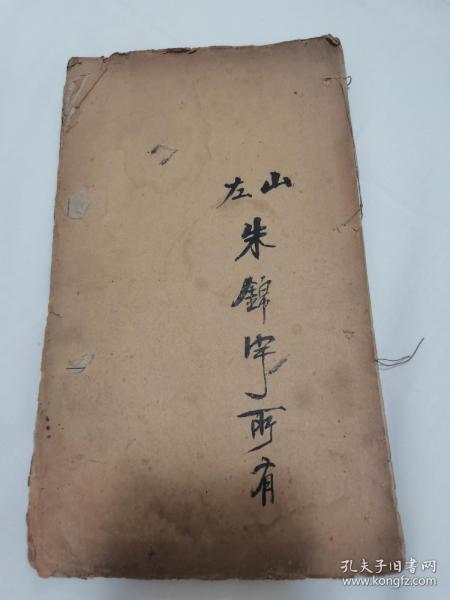 山左
朱錦宇所有
孔夫子旧书网
www.kongfz.com